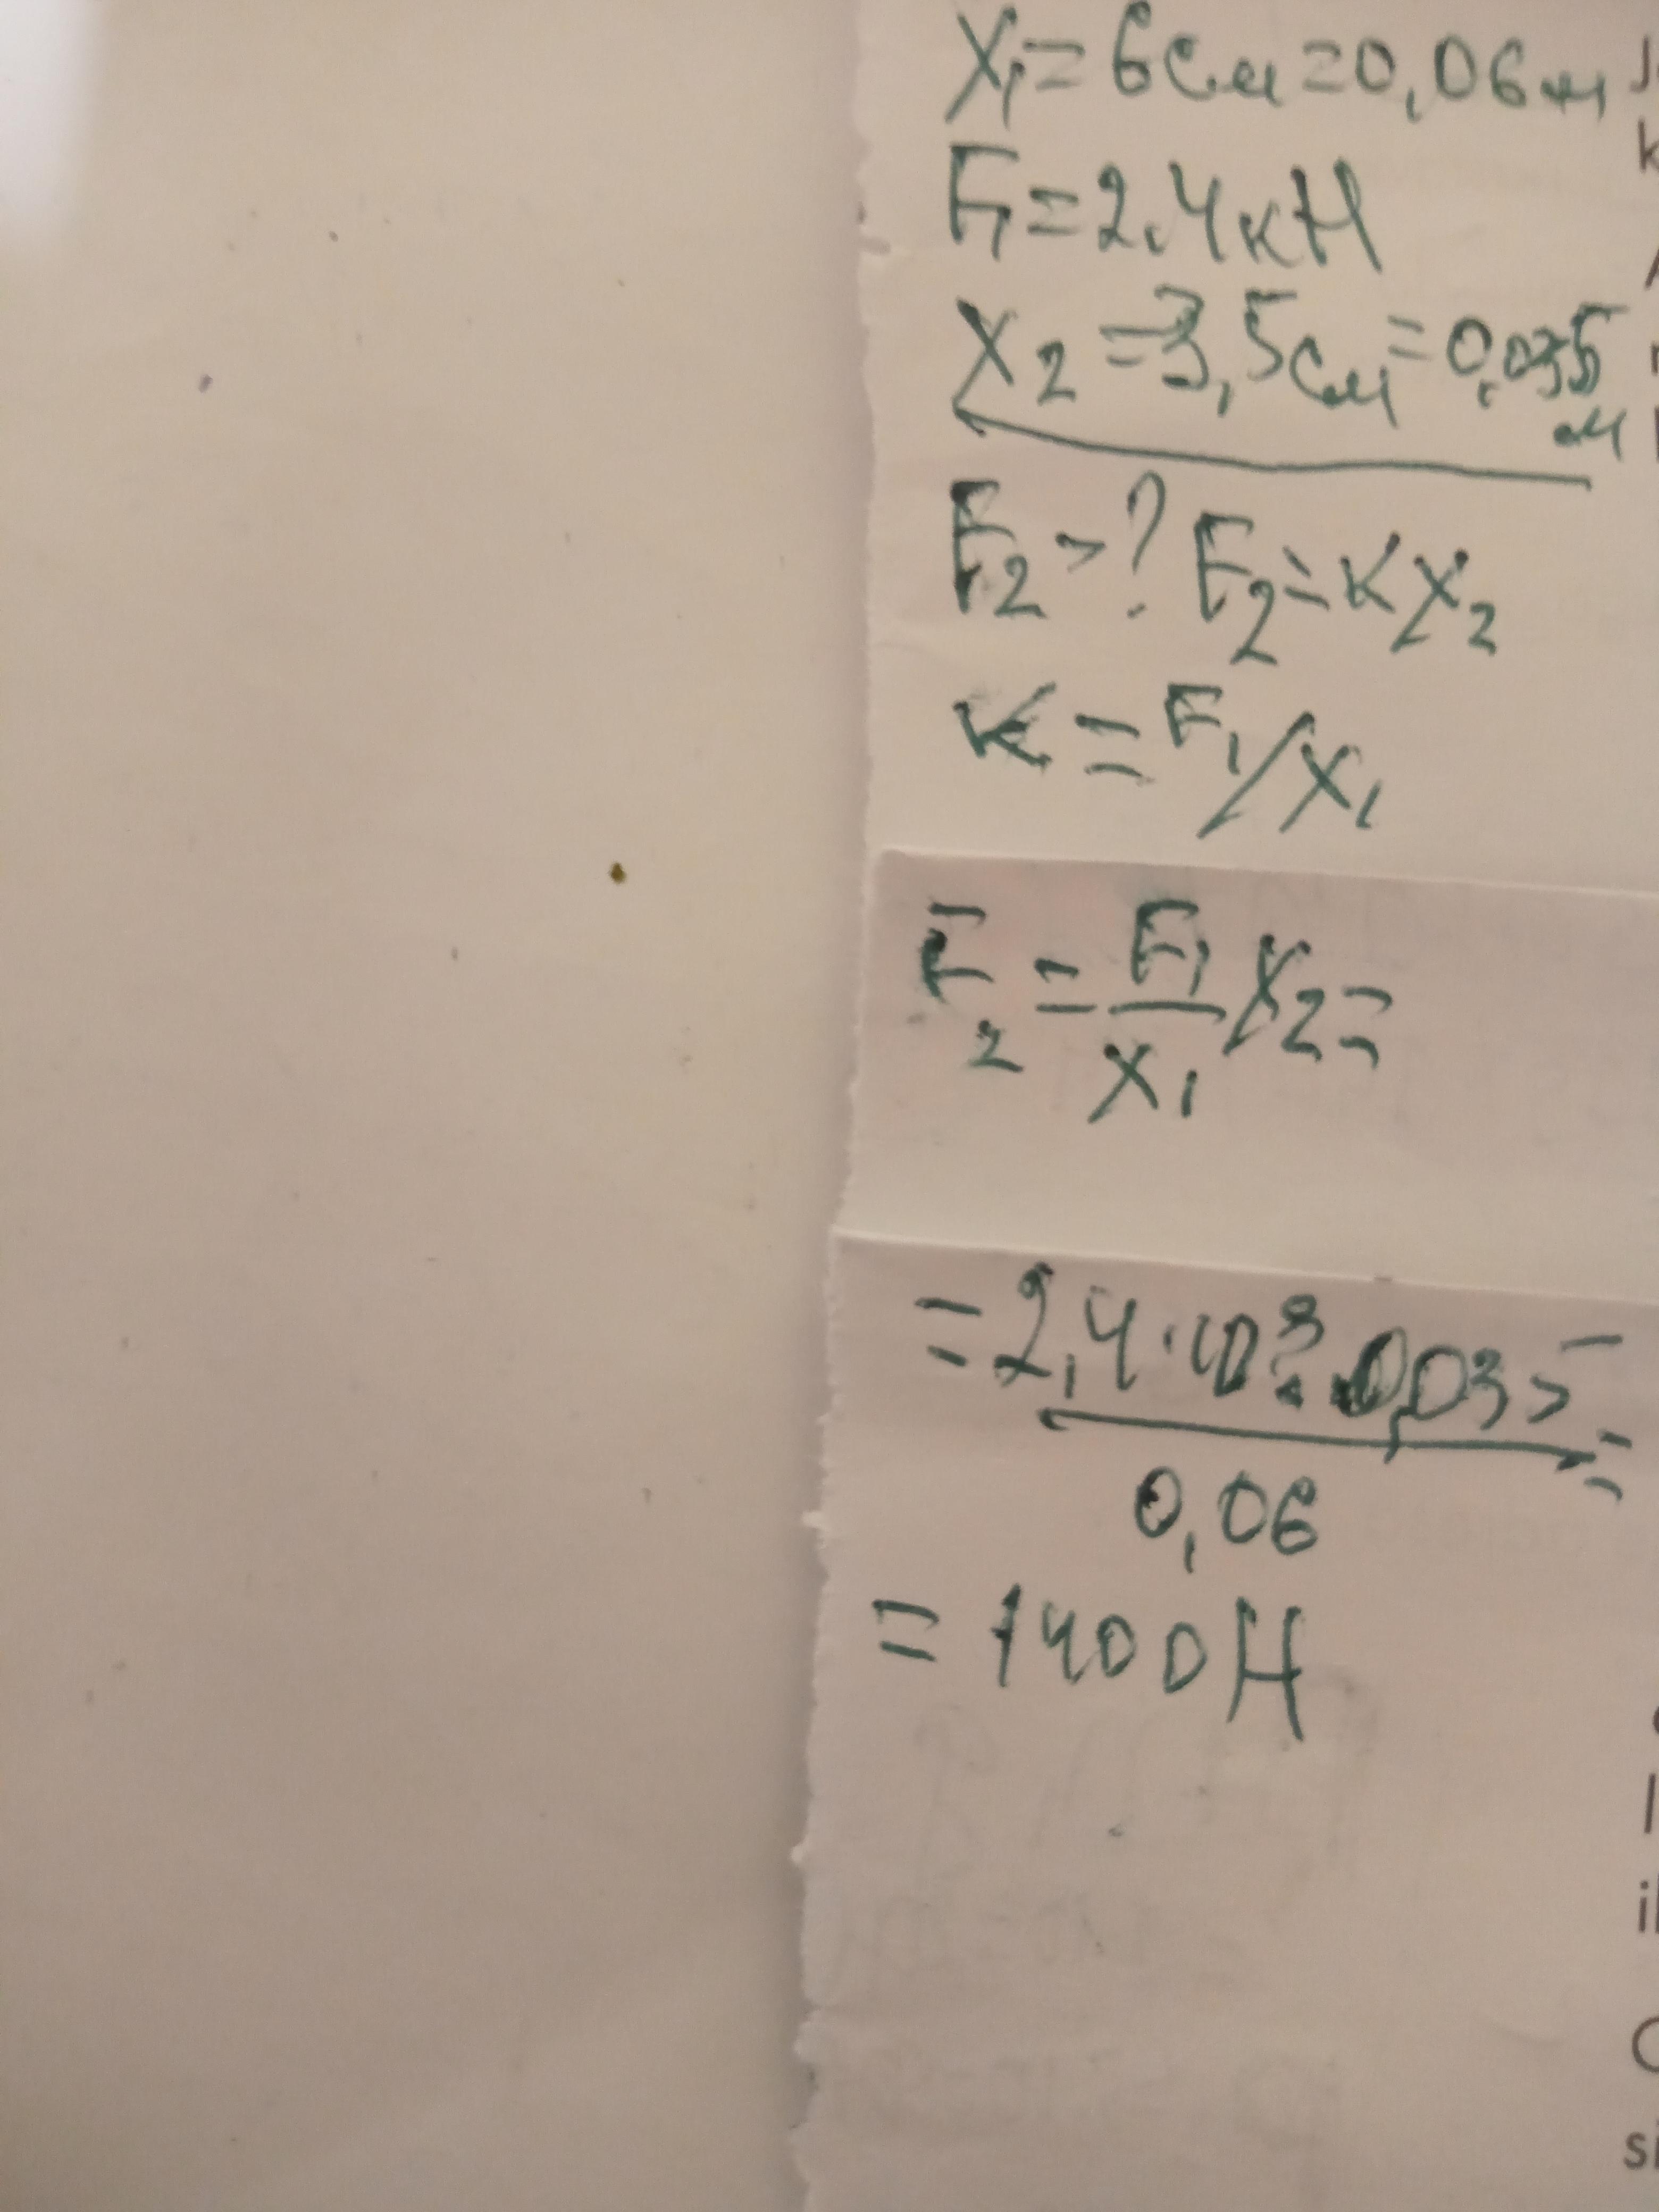 X₁ = 6см = 0,06м
F₁ = 2,4кН
X₂ = 3,5см = 0,035
м
F₂ - ? F₂ = кX₂
к = F₁/X₁
F₂ = F₁/X₁ X₂ =
= 2,4·10³·0,035 =
0,06
= 1400Н